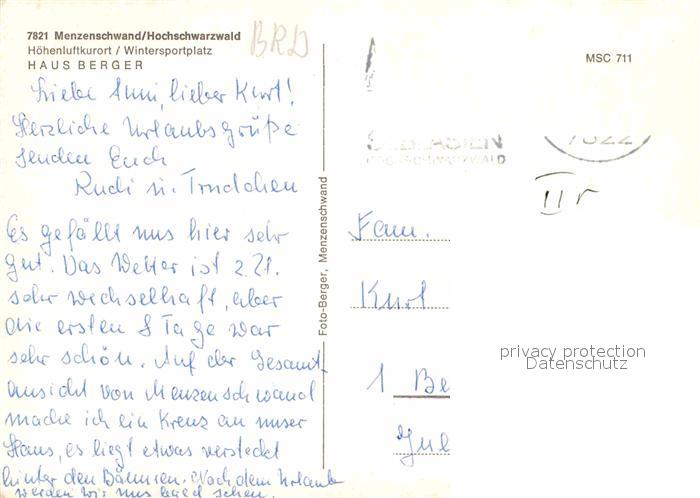 7821 Menzenschwand/Hochschwarzwald
Höhenluftkurort / Wintersportplatz
HAUS BERGER
BRD
MSC 711
Liebe Anni, lieber Kurt!
Herzliche Urlaubsgrüße
senden Euch
Rudi u. Trudchen
Es gefällt uns hier sehr
gut. Das Wetter ist z. Zt.
sehr wechselhaft, aber
die ersten 8 Tage war
sehr schön. Auf der Gesamt-
ansicht von Menzenschwand
mache ich ein Kreuz an unser
Haus, es liegt etwas versteckt
hinter den Bäumen. Nach dem Urlaube
werden wir uns bald sehen.
Foto-Berger, Menzenschwand
BLASIEN
HOCHSCHWARZWALD
7822
II r
Fam.
Kurt
1 Be
privacy protection
Datenschutz